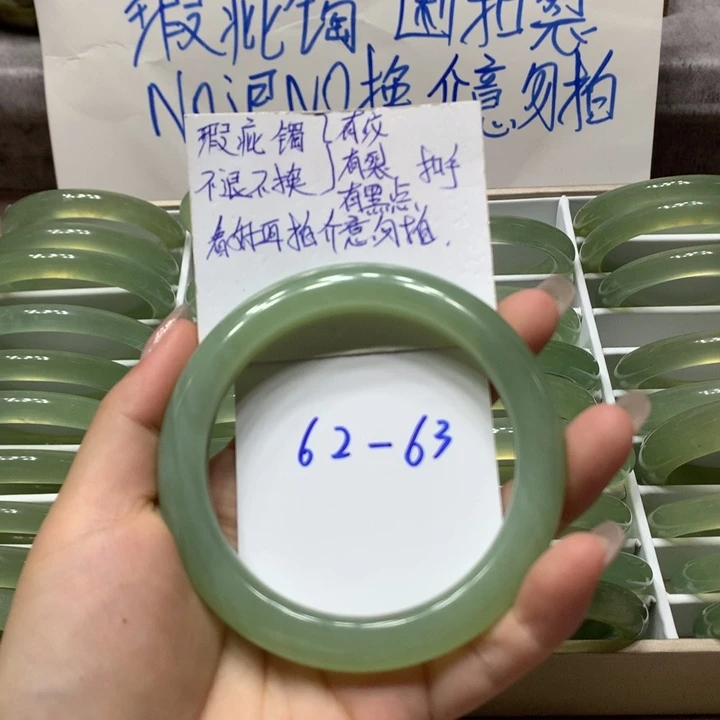 瑕疵镯 断扣裂
NO退NO换 介意勿拍
瑕疵镯 有纹
不退不换 有裂 扣手
有黑点
看好再拍介意勿拍.
62-63